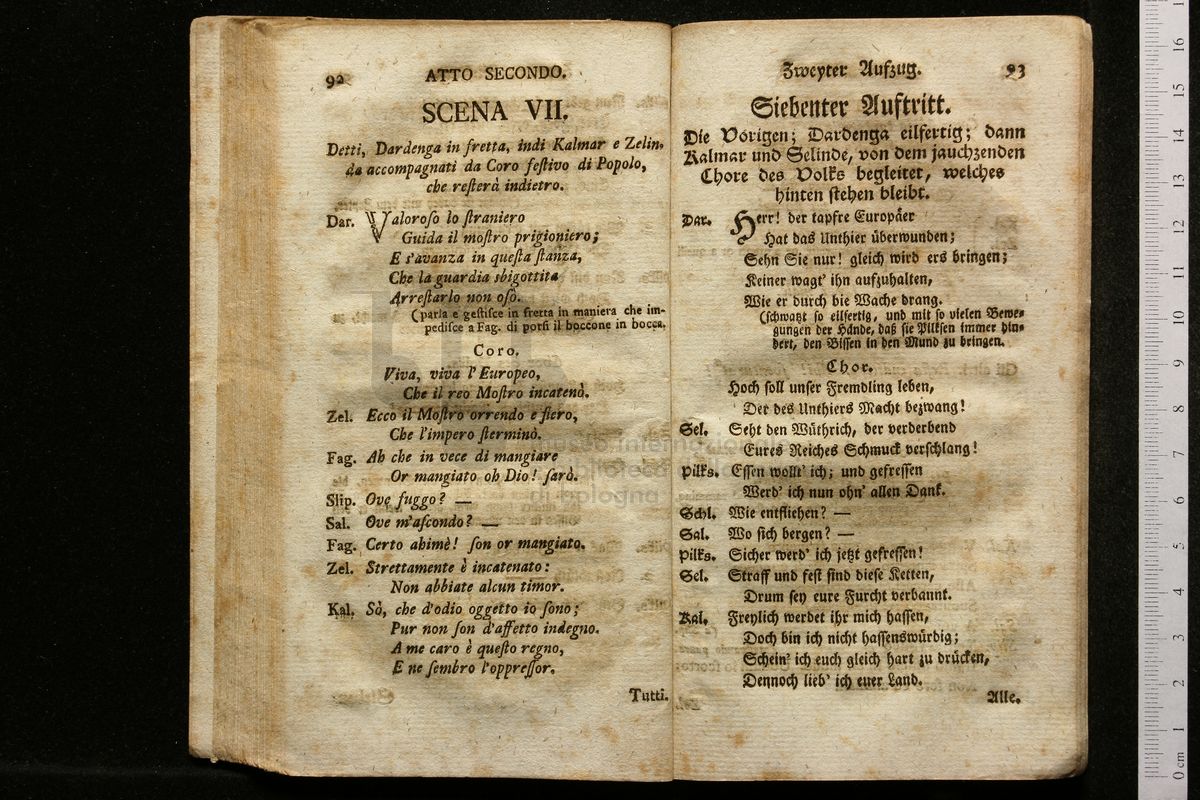 92
ATTO SECONDO.
SCENA VII.
Detti, Dardenga in fretta, indi Kalmar e Zelin-
da accompagnati da Coro feſtivo di Popolo,
che reſterà indietro.
Dar. Valoroſo lo ſtraniero
Guida il moſtro prigioniero;
E s'avanza in queſta ſtanza,
Che la guardia sbigottita
Arreſtarlo non osò.
(parla e geſtiſce in fretta in maniera che im-
pediſce a Fag. di porſi il boccone in bocca.
Coro.
Viva, viva l'Europeo,
Che il reo Moſtro incatenò.
Zel. Ecco il Moſtro orrendo e fiero,
Che l'impero ſterminò.
Fag. Ah che in vece di mangiare
Or mangiato oh Dio! ſarò.
Slip. Ove fuggo? —
Sal. Ove m'aſcondo? —
Fag. Certo ahimè! ſon or mangiato.
Zel. Strettamente è incatenato:
Non abbiate alcun timor.
Kal. Sò, che d'odio oggetto io ſono;
Pur non ſon d'affetto indegno.
A me caro è queſto regno,
E ne ſembro l'oppreſſor.
Tutti.
Zweyter Aufzug.
93
Siebenter Auftritt.
Die Vorigen; Dardenga eilfertig; dann
Kalmar und Selinde, von dem jauchzenden
Chore des Volks begleitet, welches
hinten ſtehen bleibt.
Dar. Herr! der tapfre Europäer
Hat das Unthier überwunden;
Sehn Sie nur! gleich wird ers bringen;
Keiner wagt' ihn aufzuhalten,
Wie er durch die Wache drang.
(ſchwatzt ſo eilfertig, und mit ſo vielen Bewe-
gungen der Hände, daß ſie Pilkſen immer hin-
dert, den Biſſen in den Mund zu bringen.
Chor.
Hoch ſoll unſer Fremdling leben,
Der des Unthiers Macht bezwang!
Sel. Seht den Wüthrich, der verderbend
Eures Reiches Schmuck verſchlang!
Pilks. Eſſen wollt' ich; und gefreſſen
Werd' ich nun ohn' allen Dank.
Schl. Wie entfliehen? —
Sal. Wo ſich bergen? —
Pilks. Sicher werd' ich jetzt gefreſſen!
Sel. Straff und feſt ſind dieſe Ketten,
Drum ſey eure Furcht verbannt.
Kal. Freylich werdet ihr mich haſſen,
Doch bin ich nicht haſſenswürdig;
Schein' ich euch gleich hart zu drücken,
Dennoch lieb' ich euer Land.
Alle.
museo internazionale
biblioteca
di bologna
0 cm 1 2 3 4 5 6 7 8 9 10 11 12 13 14 15 16